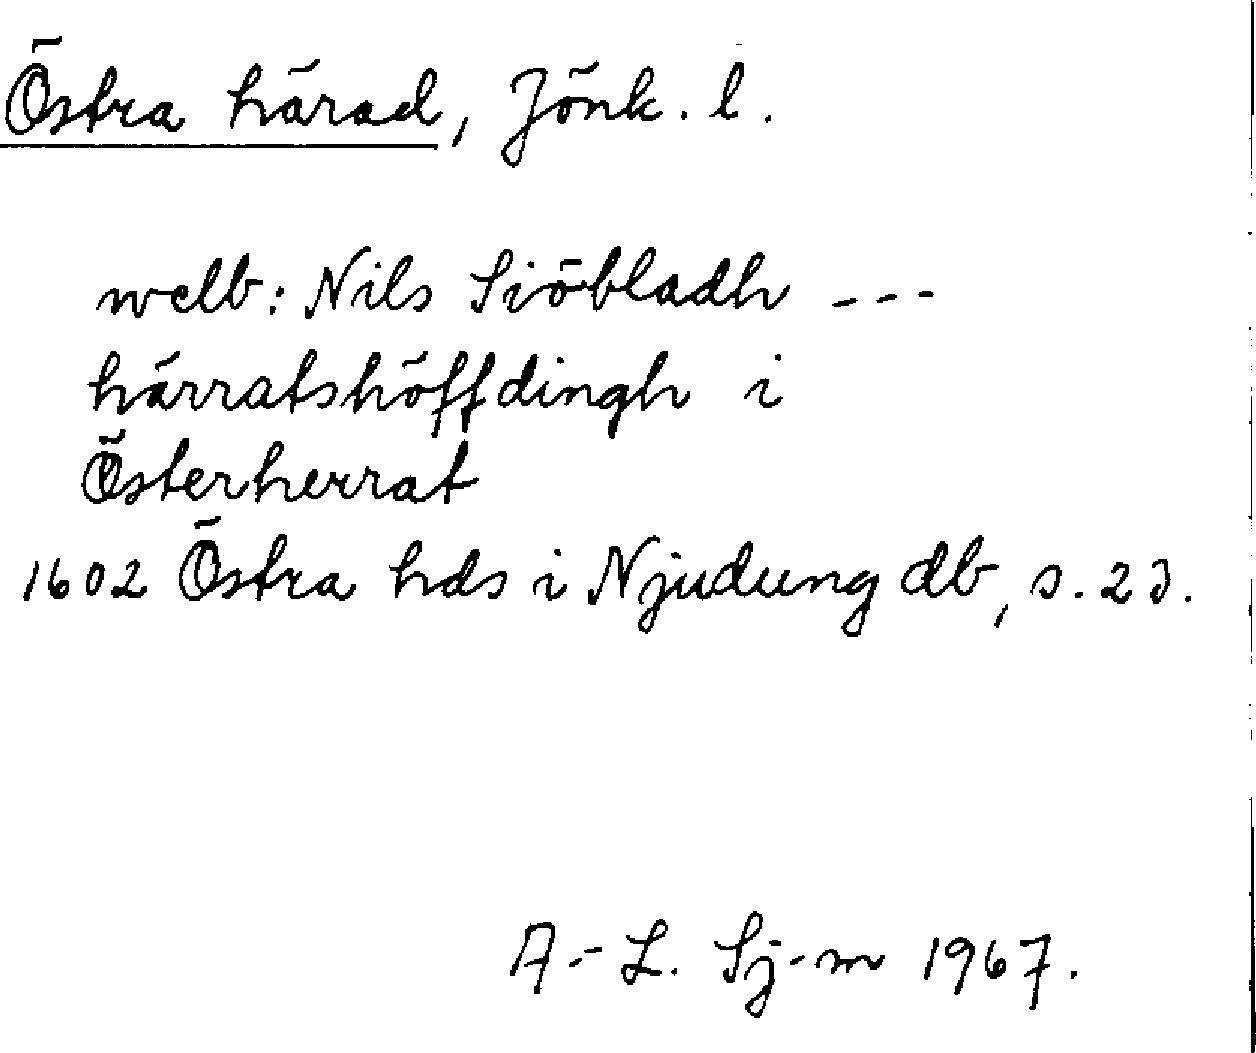 Östra härad, Jönk. l.
welb: Nils Siöbladh ---
härratshöffdingh i
Österherrat
1602 Östra hds i Njudung db, s. 23.
A.-L. Sj-m 1967.